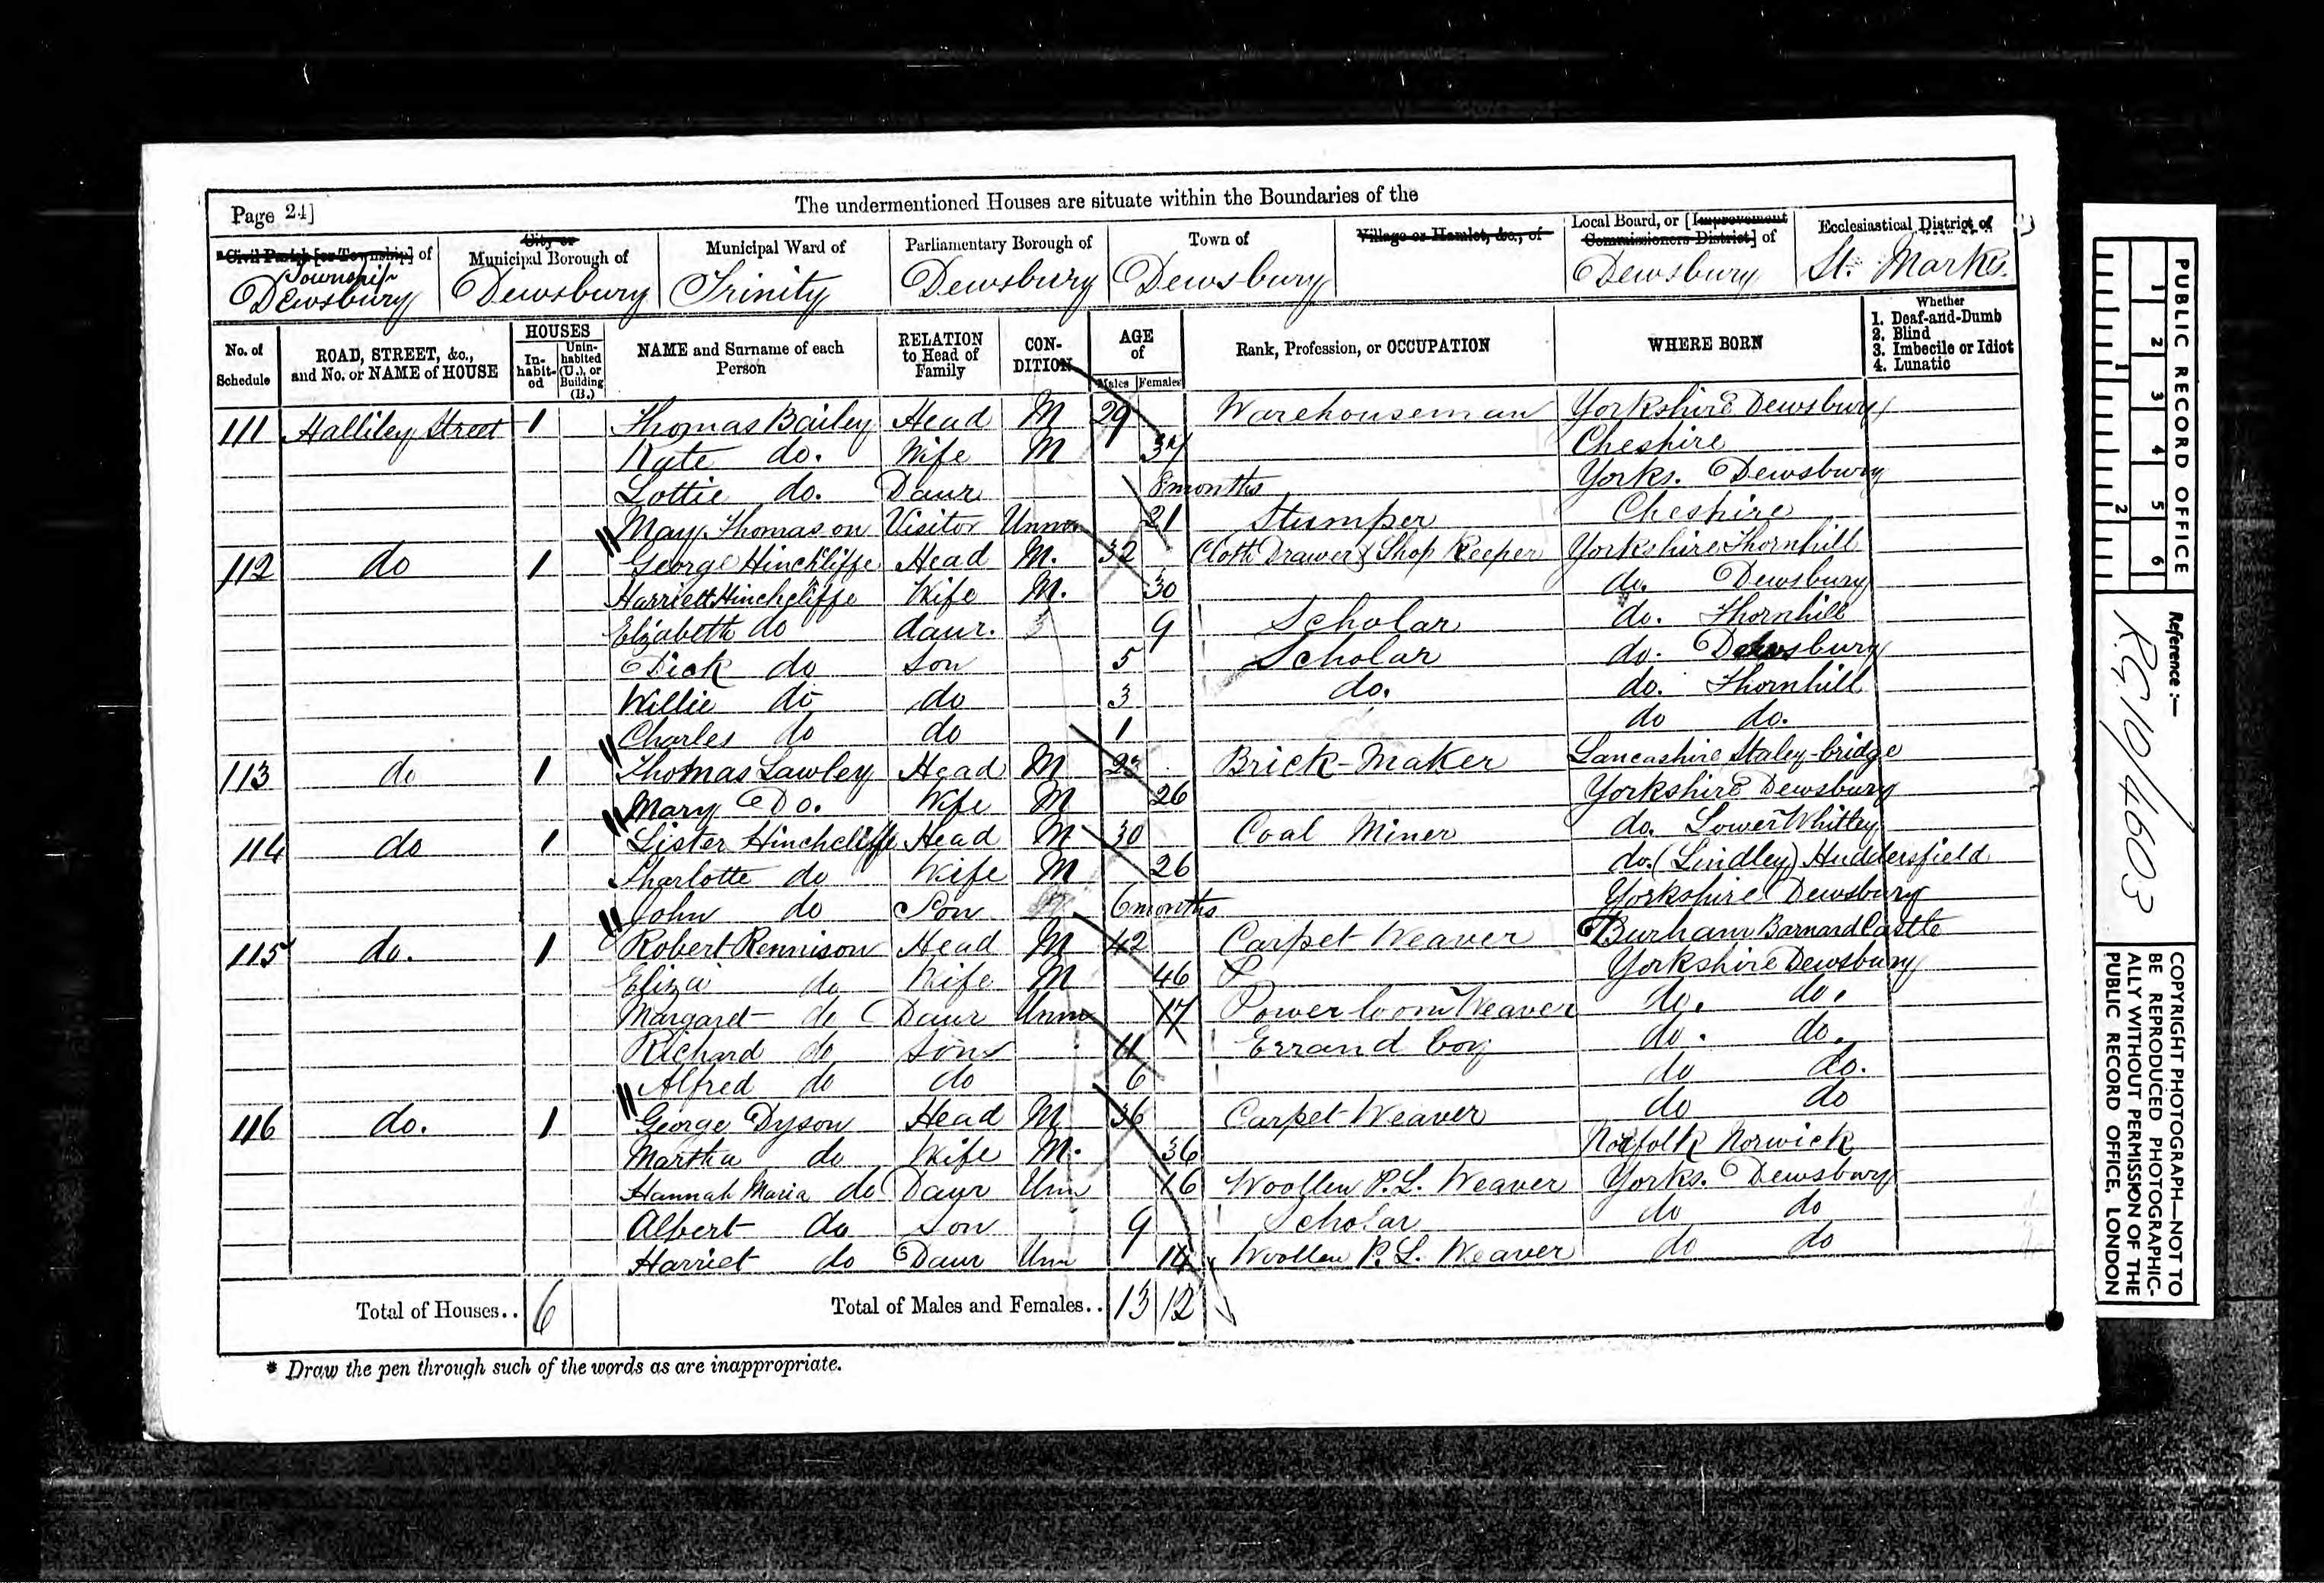 Page 24]
The undermentioned Houses are situate within the Boundaries of the
*Civil Parish [or Township] of
Township
Dewsbury
City or
Municipal Borough of
Dewsbury
Municipal Ward of
Trinity
Parliamentary Borough of
Dewsbury
Town of
Dewsbury
Village or Hamlet, &c., of
Local Board, or [Improvement
Commissioners District] of
Dewsbury
Ecclesiastical District of
St. Marks.
No. of
Schedule
ROAD, STREET, &c.,
and No. or NAME of HOUSE
HOUSES
In-
habit-
ed
Unin-
habited
(U.), or
Building
(B.)
NAME and Surname of each
Person
RELATION
to Head of
Family
CON-
DITION
AGE
of
Males Females
Rank, Profession, or OCCUPATION
WHERE BORN
Whether
1. Deaf-and-Dumb
2. Blind
3. Imbecile or Idiot
4. Lunatic
111 Halliley Street 1 Thomas Bailey Head M 29 Warehouseman Yorkshire Dewsbury
Kate do. Wife M Cheshire
Lottie do. Daur 8 months Yorks. Dewsbury
May Thomason Visitor Unmar 21 Stumper Cheshire
112 do 1 George Hinchliffe Head M. 32 Cloth Drawer & Shop Keeper Yorkshire Thornhill
Harriett Hinchcliffe Wife M. 30 do. Dewsbury
Elizabeth do daur. 9 Scholar do. Thornhill
Dick do Son 5 Scholar do. Dewsbury
Willie do do 3 do. do. Thornhill
Charles do do 1 do do.
113 do 1 Thomas Lawley Head M 23 Brick-Maker Lancashire Staley-bridge
Mary Do. Wife M 26 Yorkshire Dewsbury
114 do 1 Lister Hinchcliffe Head M 30 Coal Miner do. Lower Whitley
Charlotte do Wife M 26 do. (Lindley) Huddersfield
John do Son 6 months Yorkshire Dewsbury
115 do. 1 Robert Rennison Head M 42 Carpet Weaver Durham Barnard Castle
Eliza do Wife M 46 Yorkshire Dewsbury
Margaret do Daur Unm 17 Power loom Weaver do. do.
Richard do Son 11 Errand boy do. do.
Alfred do do 6 do do.
116 do. 1 George Dyson Head M 36 Carpet Weaver do do
Martha do Wife M. 36 Norfolk Norwick
Hannah Maria do Daur Unm 16 Woollen P.L. Weaver Yorks. Dewsbury
Albert do Son 9 Scholar do do
Harriet do Daur Unm 14 Woollen P.L. Weaver do do
Total of Houses.. 6 Total of Males and Females.. 13 12
* Draw the pen through such of the words as are inappropriate.
PUBLIC RECORD OFFICE
1 2 3 4 5 6
1 2
Reference :-
R.G. 10/4603
COPYRIGHT PHOTOGRAPH—NOT TO
BE REPRODUCED PHOTOGRAPHIC-
ALLY WITHOUT PERMISSION OF THE
PUBLIC RECORD OFFICE, LONDON